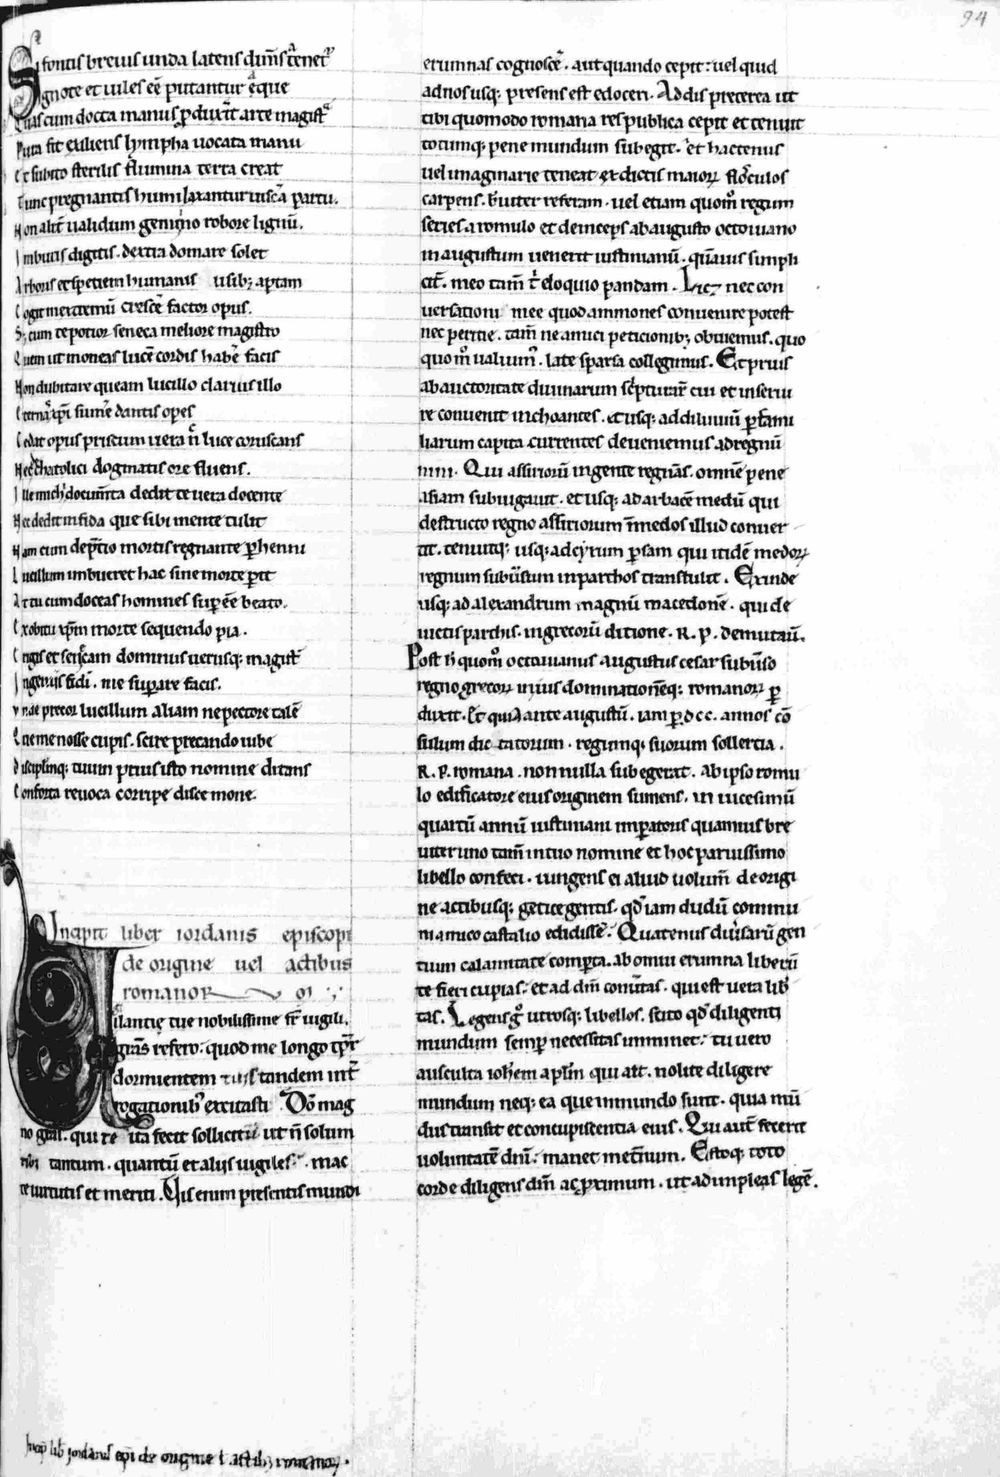 94
Si fontis breuis unda latens dum̄s t̄net᷑
Ignote et uiles eē putantur eque
Quas cum docta manus ꝓduxīt arte magist᷑
Puta fit exiliens lympha uocata manu
Et subito sterilis flumina terra creat
Tunc pregnantis humi laxantur uiscā partu.
Non alit᷑ ualidum gemino robore lignū.
Imbutis digitis. dextra domare solet
Arboris et spetiem humanis usibꝫ aptam
Cogit crescē factor opus.
Sꝫ cum te potior seneca meliore magistro
Quem ut moneas lucē cordis habē facis
Non dubitare queam lucillo clarius illo
Eternā xp̄i sumē dantis opes
Cedat opus priscum uera n̄ luce coruscans
Nec chatolici dogmatis ore fluens.
Ille docum̄ta dedit te uera docente
Nec dedit infida que sibi mente tulit
Nam cum dep̄tio mortis regnante ꝑhenni
Lucillum imbueret hac sine morte ꝑit
At tu cum doceas homines suꝑeē beato.
Exobitu xp̄m morte sequendo pia.
Cingis et senecam dominus uerusqꝫ magist᷑
Ingeniis fidi. me suꝑare facis.
Vnde precor lucillum aliam ne pectore talē
Que me nosse cupis. scire precando iube
Disciplinqꝫ tuum prius isto nomine ditans
Conforta reuoca corripe disce mone.
Incipit liber iordanis episcopi
de origine uel actibus
romanorꝫ
Vigilantię tue nobilissime fr̄ uigili.
grās refero. quod me longo tp̄r
dormientem tandem int᷑
rogationibꝰ excitasti Dō mag
no gr̄as. qui te ita fecit sollicitū ut n̄ solum
tibi tantum. quantū et aliis uigiles. mac
te uirtutis et meriti. Uis enim presentis mundi
erumnas cognoscē. aut quando cepit: uel quid
ad nos usqꝫ presens est edoceri. Addis preterea ut
tibi quomodo romana res publica cepit et tenuit
totumqꝫ pene mundum subegit. et hactenus
uel imaginarie teneat ex dictis maiorꝫ flosculos
carpens. b̄uiter referam. uel etiam quom̊ regum
series. a romulo et deinceps ab augusto octouiano
in augustum uenerit iustinianū. quāuis simpli
cit̄. meo tam̄ t᷑ eloquio pandam. Licꝫ nec con
uersationi mee quod ammones conuenire potest
nec peritie. tam̄ ne amici peticionibꝫ obuiemus. quo
quo m̊ ualuim᷒. late sparsa collegimus. Et prius
ab auctoritate diuinarum sc̄pturarꝫ cui et inserui
re conuenit inchoantes. et usqꝫ ad diluuiū ꝑ fami
liarum capita currentes deueniemus ad regnū
nini. Qui assiriorū in gente regnās. omnē pene
asiam subiugauit. et usqꝫ ad arbacē medū qui
destructo regno assiriorum in medos illud conuer
tit. tenuitqꝫ usqꝫ ad cyrum ꝑsam qui itidē medorꝫ
regnum subūsum in parthos transtulit. Exinde
usqꝫ ad alexandrum magnū macedonē. qui de
uictis parthis. in grecorū ditione. R. P. demutaū.
Post h̄ quom̊ octauianus augustus cesar subūso
regno grecorꝫ in ius dominationēqꝫ romanorꝫ ꝑ
duxit. Et quia ante augustū. iam ꝑ dcc. annos cō
sulum dictatorum. regumqꝫ suorum sollertia.
R. P. romana. non nulla subegerat. ab ipso romu
lo edificatore eius originem sumens. in uicesimū
quartū annū iustiniani imperatoris quamuis bre
uiter uno tam̄ in tuo nomine et hoc paruissimo
libello confeci. iungens ei aliud uolum̄ de origi
ne actibusqꝫ getice gentis. qd̄ iam dudū commu
ni amico castalio edidissē. Quatenus diūsarū gen
tium calamitate comꝑta. ab omni erumna liberū
te fieri cupias. et ad dm̄ conūtas. qui est uera lib᷑
tas. Legens g̊ utrosqꝫ libellos. scito qd̄ diligenti
mundum semꝑ necessitas imminet. tu uero
ausculta ioh̄em aplm̄ qui ait. nolite diligere
mundum neqꝫ ea que in mundo sunt. quia mū
dus transit et concupiscentia eius. Qui aut̄ fecerit
uoluntatē dn̄i. manet in et̄num. Estoqꝫ toto
corde diligens dm̄ ac ꝓximum. ut adinpleas legē.
Incip̄ lib᷑ iordanis ep̄i de origine ł actibꝫ romanorꝫ.